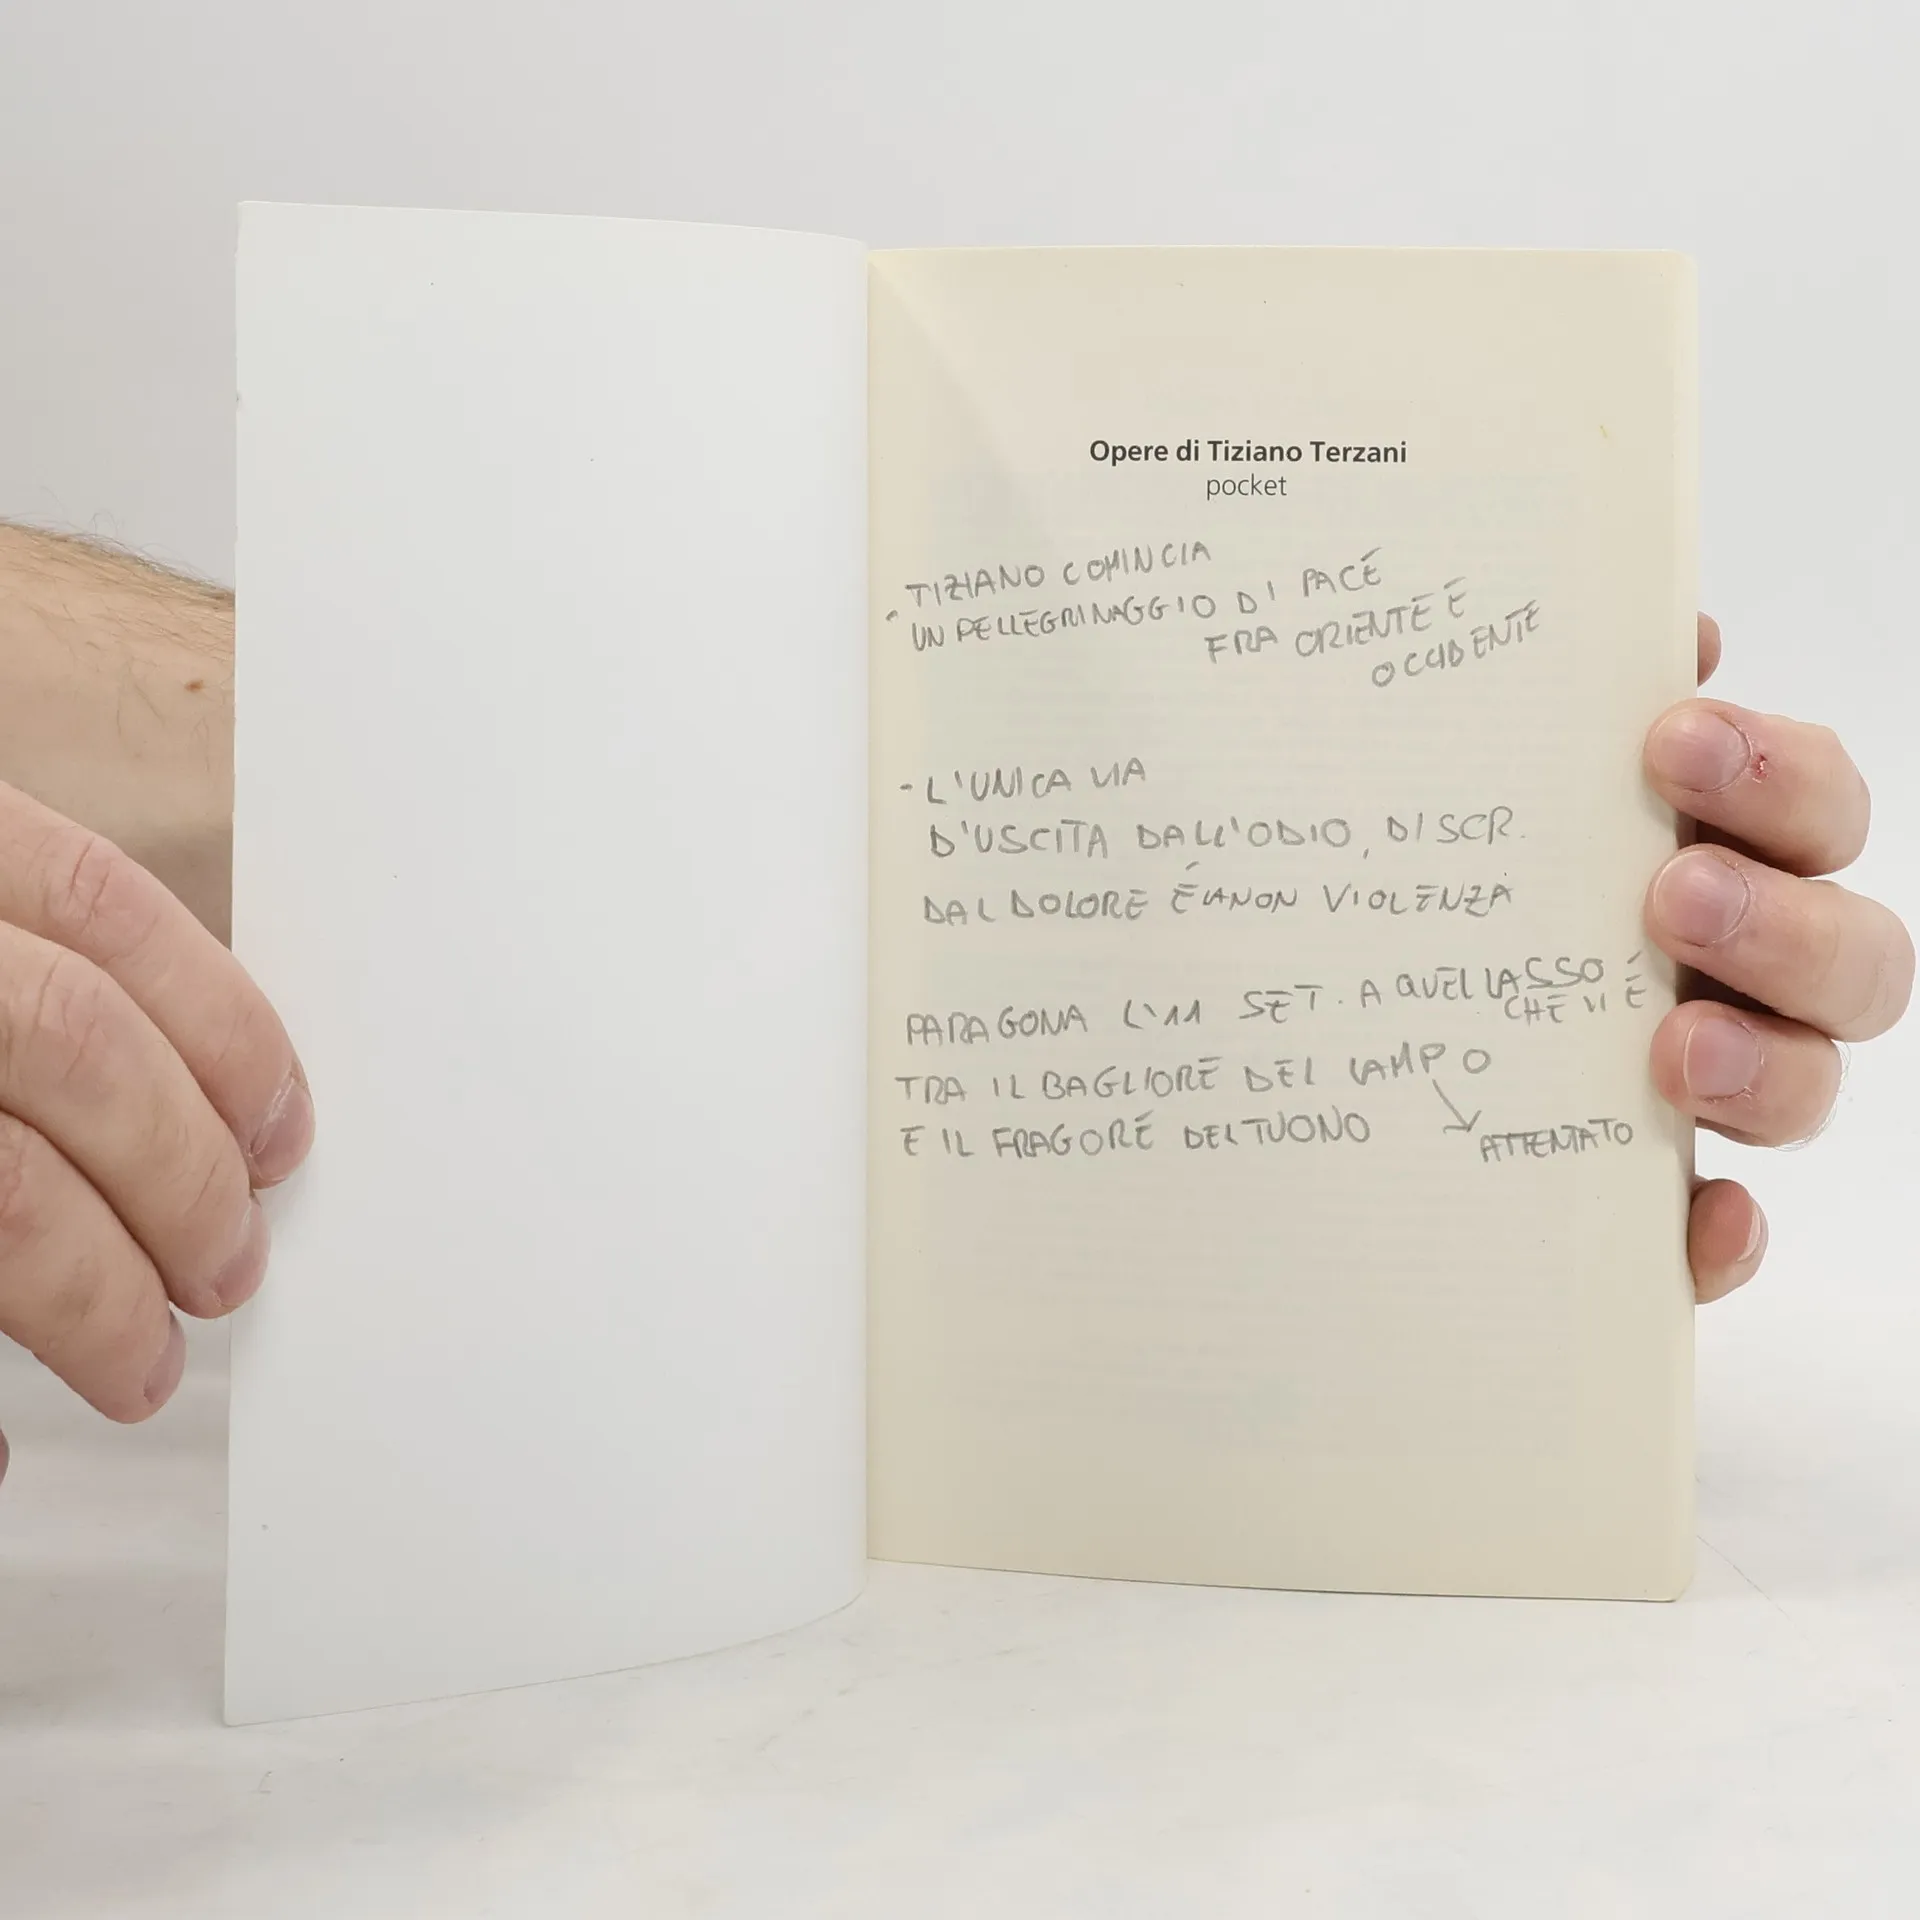 Opere di Tiziano Terzani
pocket
TIZIANO COMINCIA
- UN PELLEGRINAGGIO DI PACE
FRA ORIENTE E
OCCIDENTE
- L'UNICA VIA
D'USCITA DALL'ODIO, DISCR.
DAL DOLORE É LA NON VIOLENZA
PARAGONA L'11 SET. A QUEL LASSO
CHE VI É
TRA IL BAGLIORE DEL LAMPO
E IL FRAGORE DEL TUONO
ATTENTATO